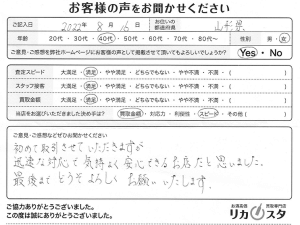 お客様の声をお聞かせください
ご記入日 2022年 8月 16日 お住いの都道府県 山形県
年齢 20代・30代・40代・50代・60代・70代・80代〜 性別 男・女
ご意見・ご感想を弊社ホームページにお客様の声として掲載させて頂いてもよろしいでしょうか? Yes・No
査定スピード 大満足・満足・やや満足・どちらでもない・やや不満・不満・( )
スタッフ接客 大満足・満足・やや満足・どちらでもない・やや不満・不満・( )
買取金額 大満足・満足・やや満足・どちらでもない・やや不満・不満・( )
当店をお選びいただきました決め手は? 買取金額・対応力・利便性・スピード・その他( )
ご意見・ご感想などぜひお聞かせください
初めて取引させていただきますが
迅速な対応で気持よく安心できるお店だと思いました。
最後まで どうぞ よろしく お願いいたします。
ご協力ありがとうございました。
この度は誠にありがとうございました。
お酒高価 買取専門店
リカスタ